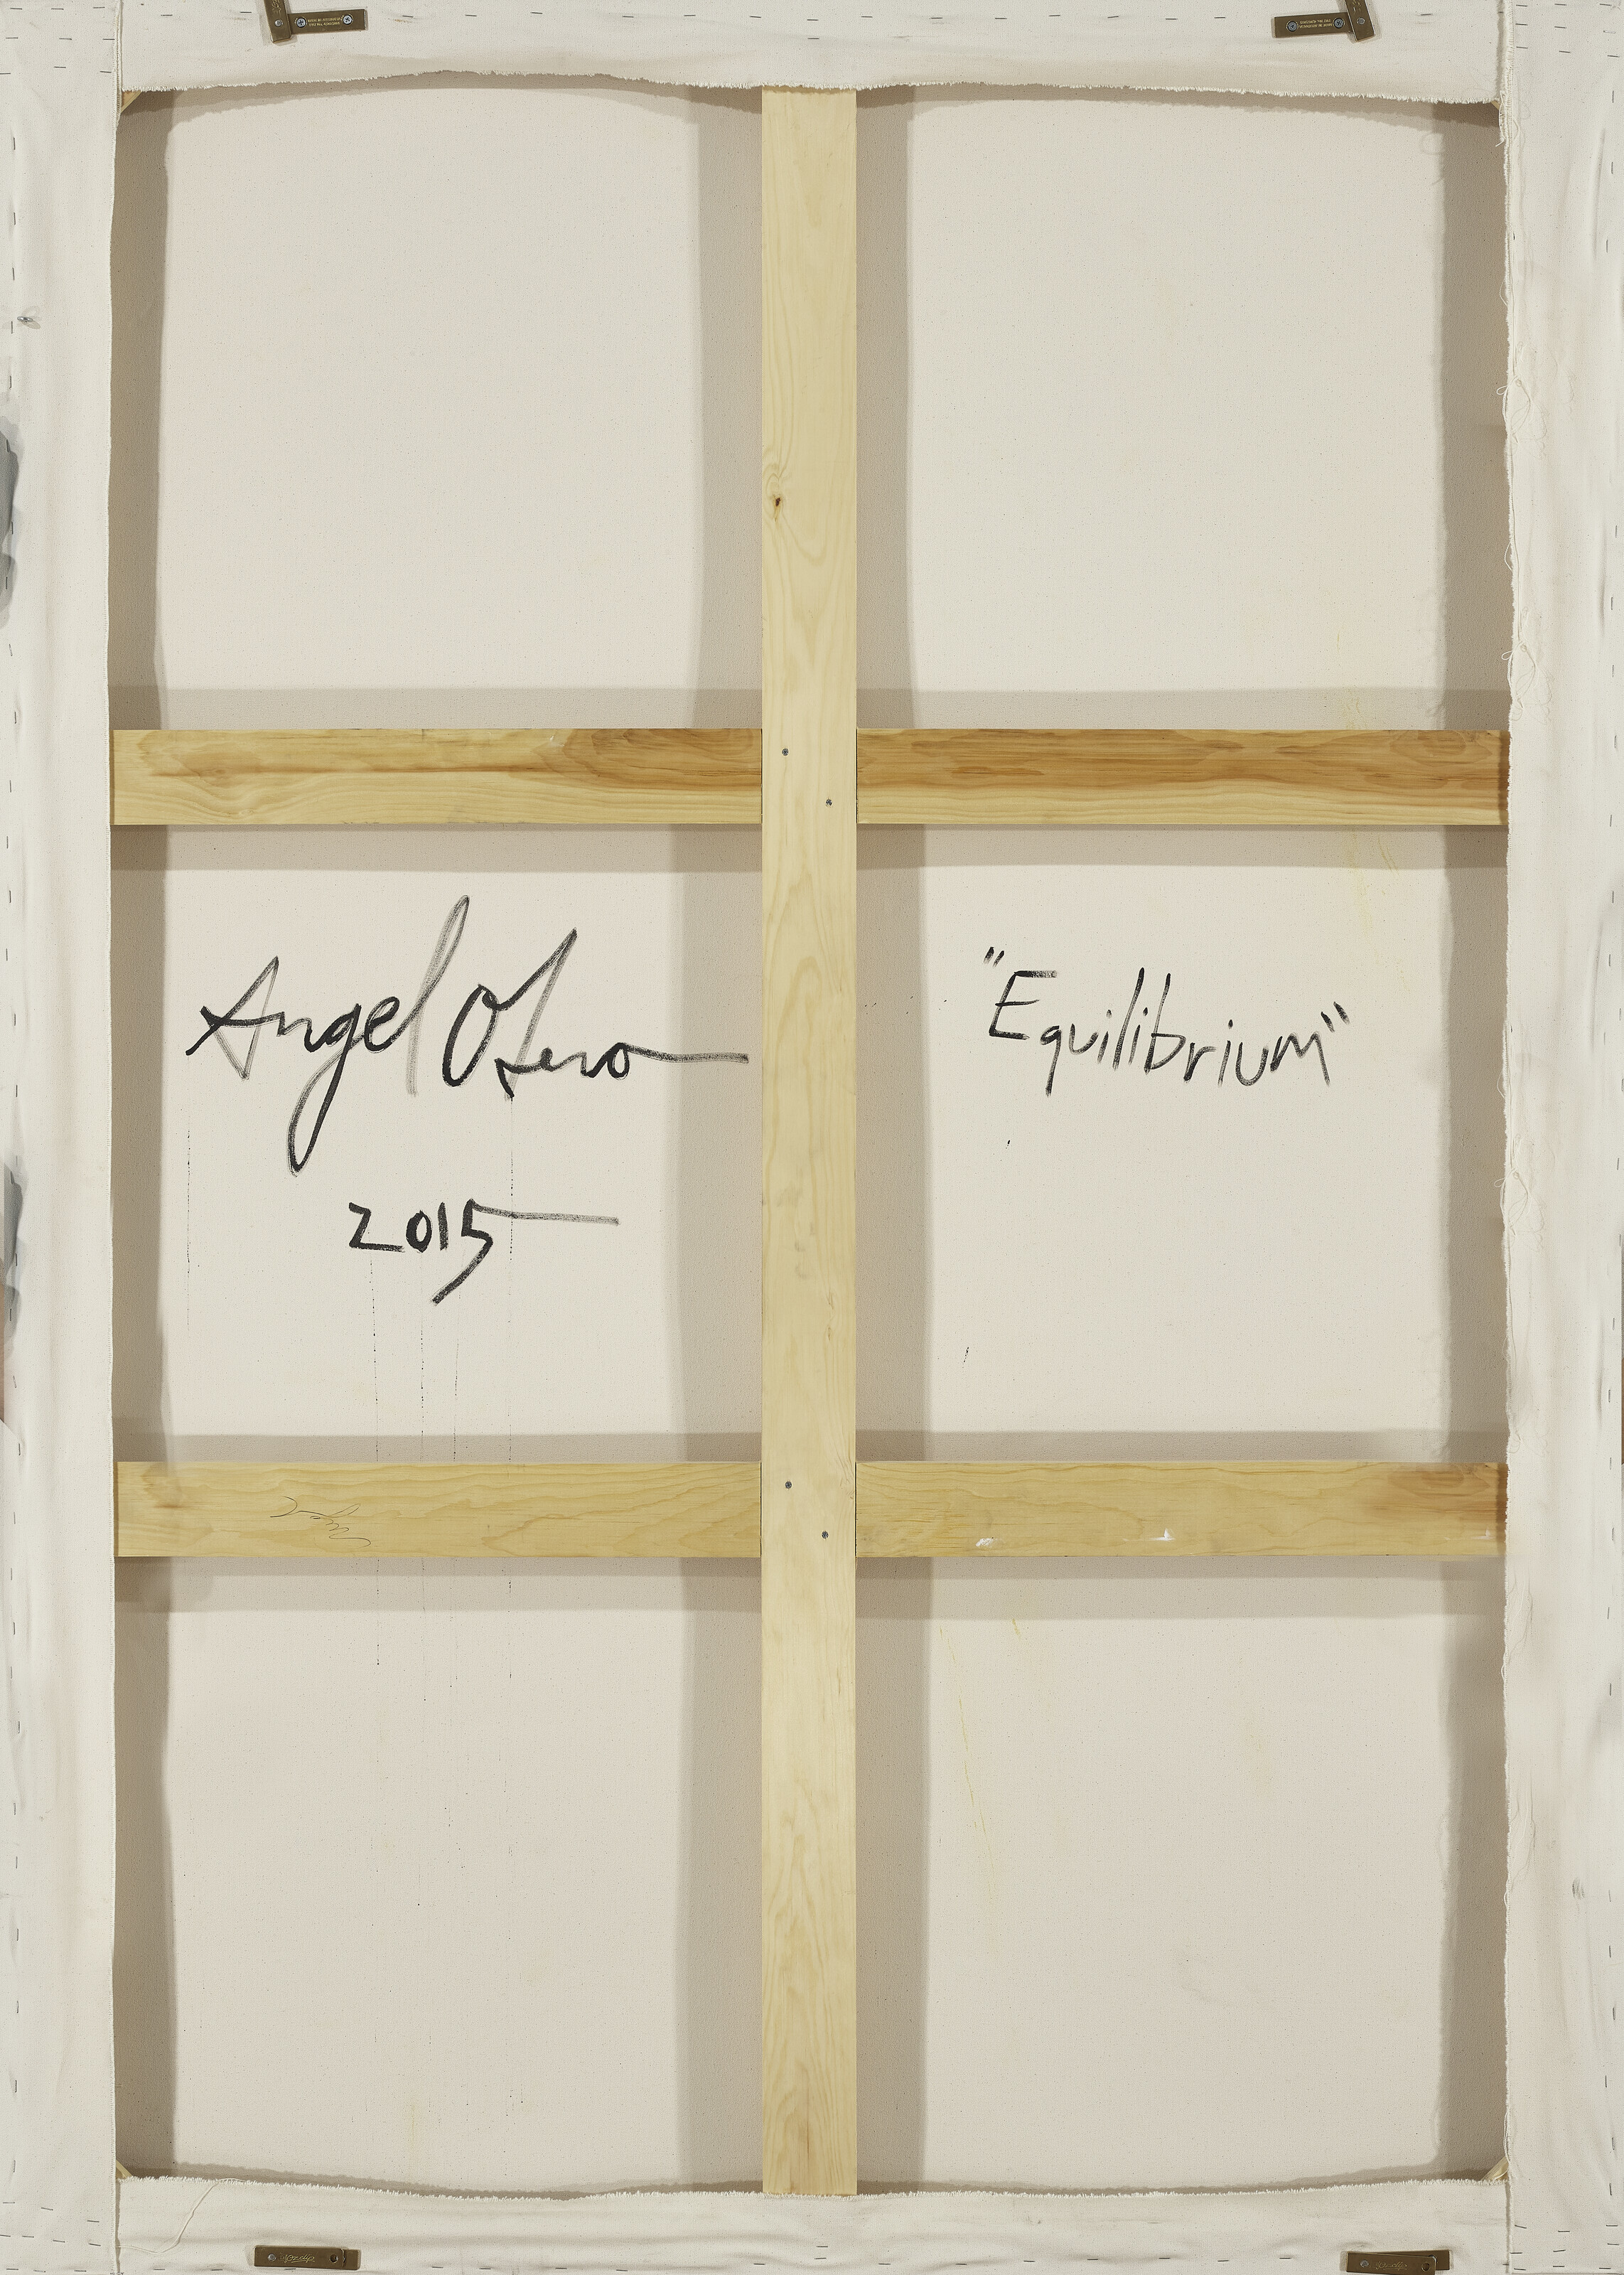 Angel Otero
2015
"Equilibrium"